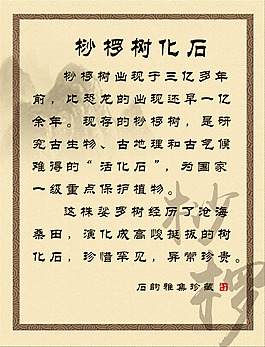 桫椤树化石
桫椤树出现于三亿多年
前，比恐龙的出现还早一亿
余年。现存的桫椤树，是研
究古生物、古地理和古气候
难得的“活化石”，为国家
一级重点保护植物。
这株娑罗树经历了沧海
桑田，演化成高峻挺拔的树
化石，珍惜罕见，异常珍贵。
石韵雅集珍藏
桫
椤